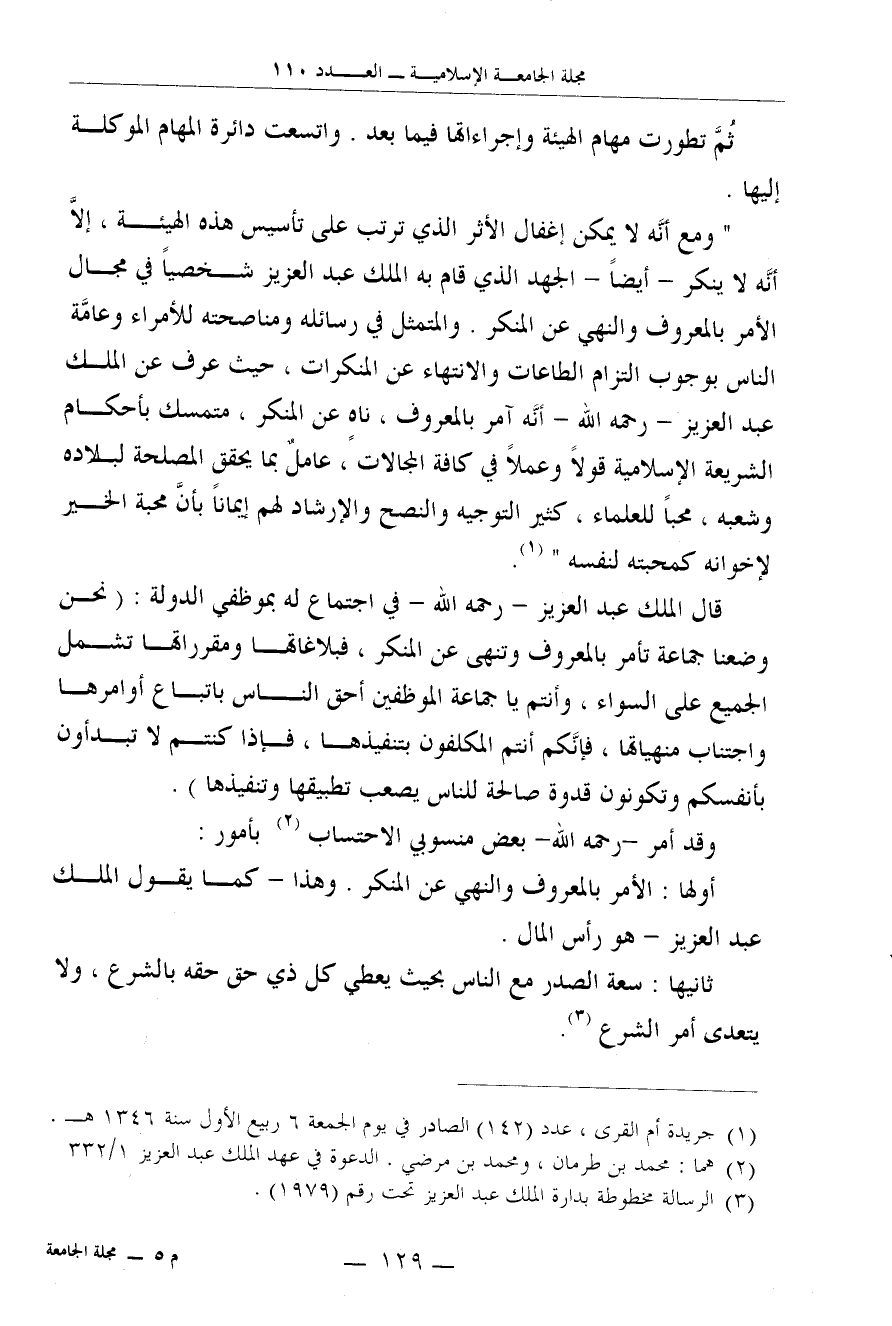 مجلة الجامعـة الإسلاميـة ــ العـــدد ١١٠
ثُمَّ تطورت مهام الهيئة وإجراءاتها فيما بعد . واتسعت دائرة المهام الموكلــة
إليها .
" ومع أنَّه لا يمكن إغفال الأثر الذي ترتب على تأسيس هذه الهيئــــة ، إلاَّ
أنَّه لا ينكر – أيضاً – الجهد الذي قام به الملك عبد العزيز شــخصياً في مجــال
الأمر بالمعروف والنهي عن المنكر . والمتمثل في رسائله ومناصحته للأمراء وعامَّة
الناس بوجوب التزام الطاعات والانتهاء عن المنكرات ، حيث عرف عن الملــك
عبد العزيز – رحمه الله – أنَّه آمر بالمعروف ، ناهٍ عن المنكر ، متمسك بأحكــام
الشريعة الإسلامية قولاً وعملاً في كافة المجالات ، عاملٌ بما يحقق المصلحة لبــلاده
وشعبه ، محباً للعلماء ، كثير التوجيه والنصح والإرشاد لهم إيماناً بأنَّ محبة الخــير
لإخوانه كمحبته لنفسه " (١).
قال الملك عبد العزيز – رحمه الله – في اجتماع له بموظفي الدولة : ( نحــن
وضعنا جماعة تأمر بالمعروف وتنهى عن المنكر ، فبلاغاتهــا ومقرراتهــا تشــمل
الجميع على السواء ، وأنتم يا جماعة الموظفين أحق النــــاس باتبــاع أوامرهــا
واجتناب منهياتها ، فإنَّكم أنتم المكلفون بتنفيذهــا ، فــإذا كنتــم لا تبــدأون
بأنفسكم وتكونون قدوة صالحة للناس يصعب تطبيقها وتنفيذها ) .
وقد أمر –رحمه الله– بعض منسوبي الاحتساب (٢) بأمور :
أولها : الأمر بالمعروف والنهي عن المنكر . وهذا – كمــا يقــول الملــك
عبد العزيز – هو رأس المال .
ثانيها : سعة الصدر مع الناس بحيث يعطي كل ذي حق حقه بالشرع ، ولا
يتعدى أمر الشرع (٣).
(١) جريدة أم القرى ، عدد (١٤٢) الصادر في يوم الجمعة ٦ ربيع الأول سنة ١٣٤٦ هــ .
(٢) هما : محمد بن طرمان ، ومحمد بن مرضي . الدعوة في عهد الملك عبد العزيز ٣٣٢/١
(٣) الرسالة مخطوطة بدارة الملك عبد العزيز تحت رقم (١٩٧٩) .
ــ ١٢٩ ــ
م ٥ ــ مجلة الجامعة